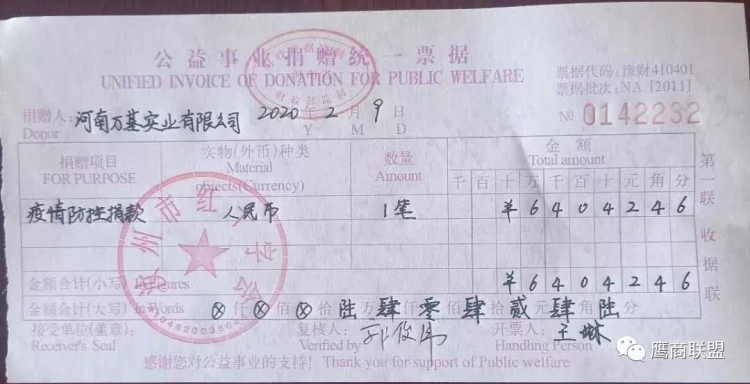 公益事业捐赠统一票据
UNIFIED INVOICE OF DONATION FOR PUBLIC WELFARE
票据代码: 豫财410401
票据批次: NA [2011]
捐赠人: 河南万基实业有限公司 2020年2月9日
Donor Y M D
№ 0142232
捐赠项目 实物(外币)种类 数量 金额
FOR PURPOSE Material objects(Currency) Amount Total amount
千 百 十 万 千 百 十 元 角 分
疫情防控捐款 人民币 1笔 ¥ 6 4 0 4 2 4 6
金额合计(小写) In Figures ¥ 6 4 0 4 2 4 6
金额合计(大写) In Words ⊗仟⊗佰⊗拾陆万肆仟零佰肆拾贰元肆角陆分
接受单位(盖章): 复核人: 开票人: 王琳
Receiver's Seal Verified by Handling Person
感谢您对公益事业的支持! Thank you for support of Public welfare
第一联 收据联
汝州市红十字会
鹰商联盟